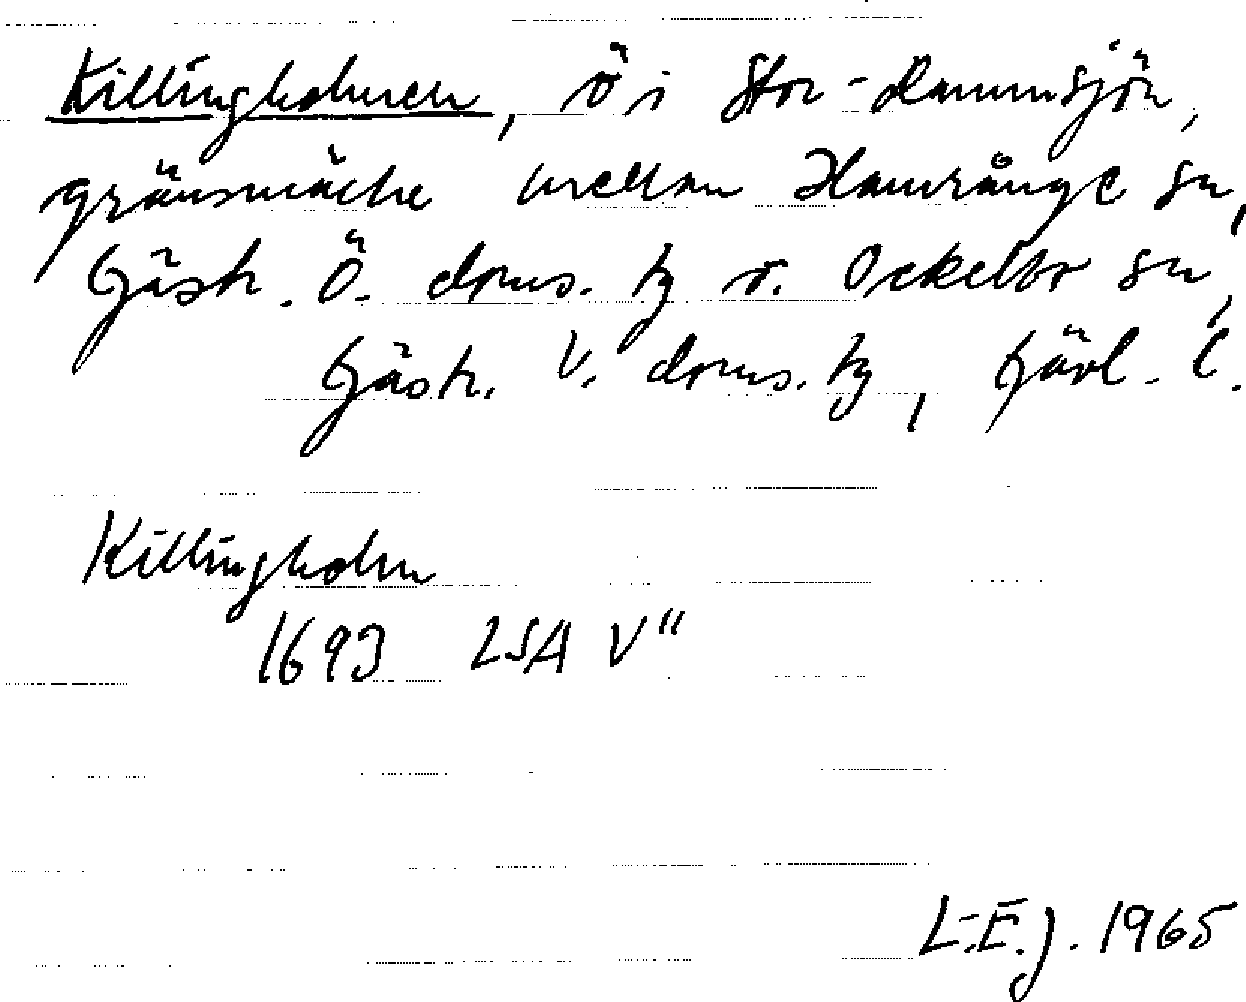 Killingholmen, ö i Stor-Rammsjön,
gränsmärke mellan Hamrånge sn,
Gästr. Ö. doms. tg o. Ockelbo sn,
Gästr. V. doms. tg, Gävl. l.
Killingholm
1693 LSA V"
L.E.J. 1965